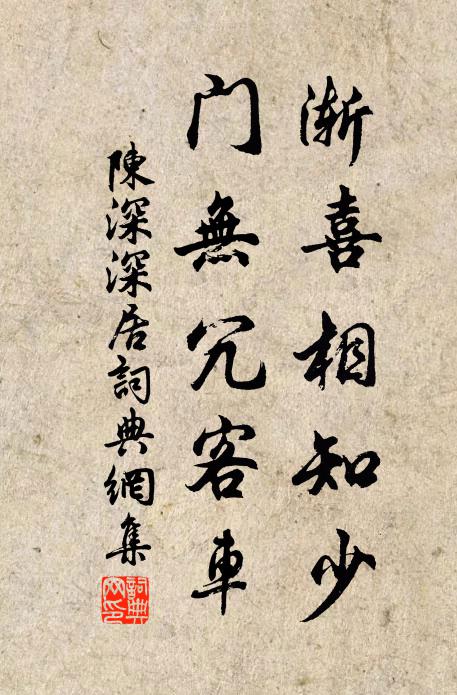 漸喜相知少
門無冗客車
陳深深居詞典網集
詞典